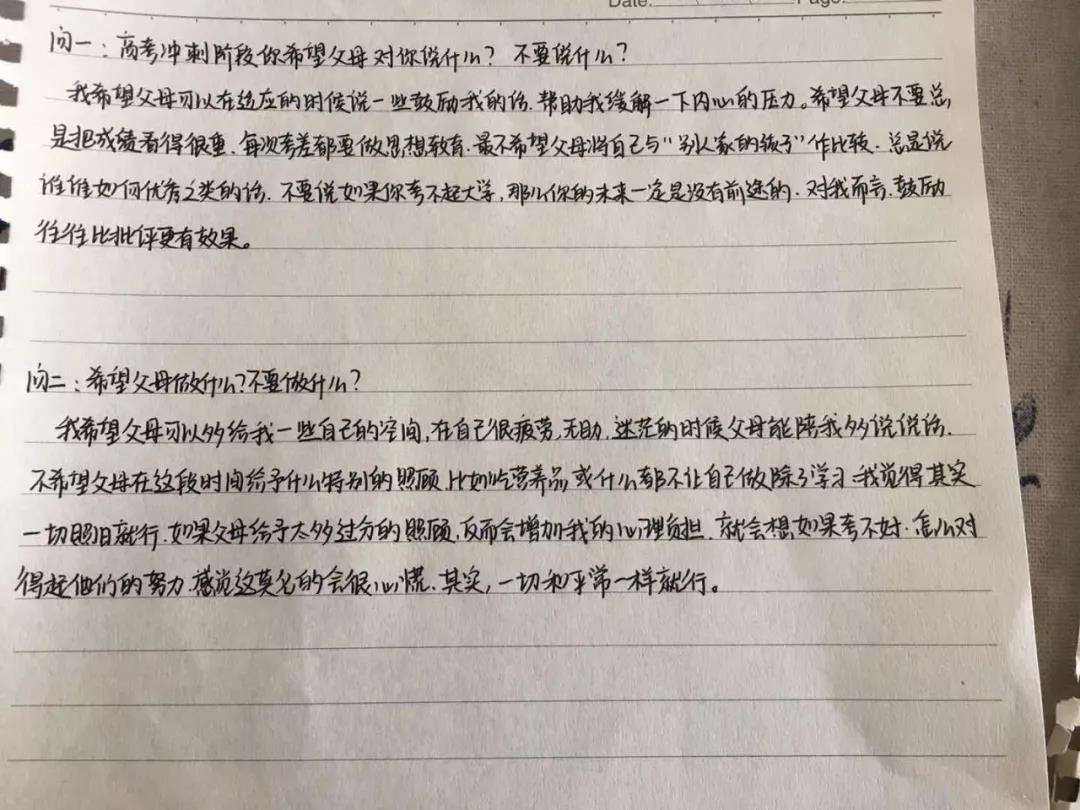 Date: Page:
问一：高考冲刺阶段你希望父母对你说什么？ 不要说什么？
我希望父母可以在适应的时候说一些鼓励我的话，帮助我缓解一下内心的压力。希望父母不要总
是把成绩看得很重，每次考差都要做思想教育，最不希望父母将自己与“别人家的孩子”作比较，总是说
谁谁如何优秀之类的话，不要说如果你考不起大学，那么你的未来一定是没有前途的，对我而言，鼓励
往往比批评更有效果。
问二：希望父母做什么？不要做什么？
我希望父母可以多给我一些自己的空间，在自己很疲劳，无助，迷茫的时候父母能陪我多说说话，
不希望父母在这段时间给予什么特别的照顾，比如吃营养品或什么都不让自己做除了学习，我觉得其实
一切照旧就行，如果父母给予太多过分的照顾，反而会增加我的心理负担，就会想如果考不好，怎么对
得起他们的努力，感觉这莫名的会很心慌，其实，一切和平常一样就行。